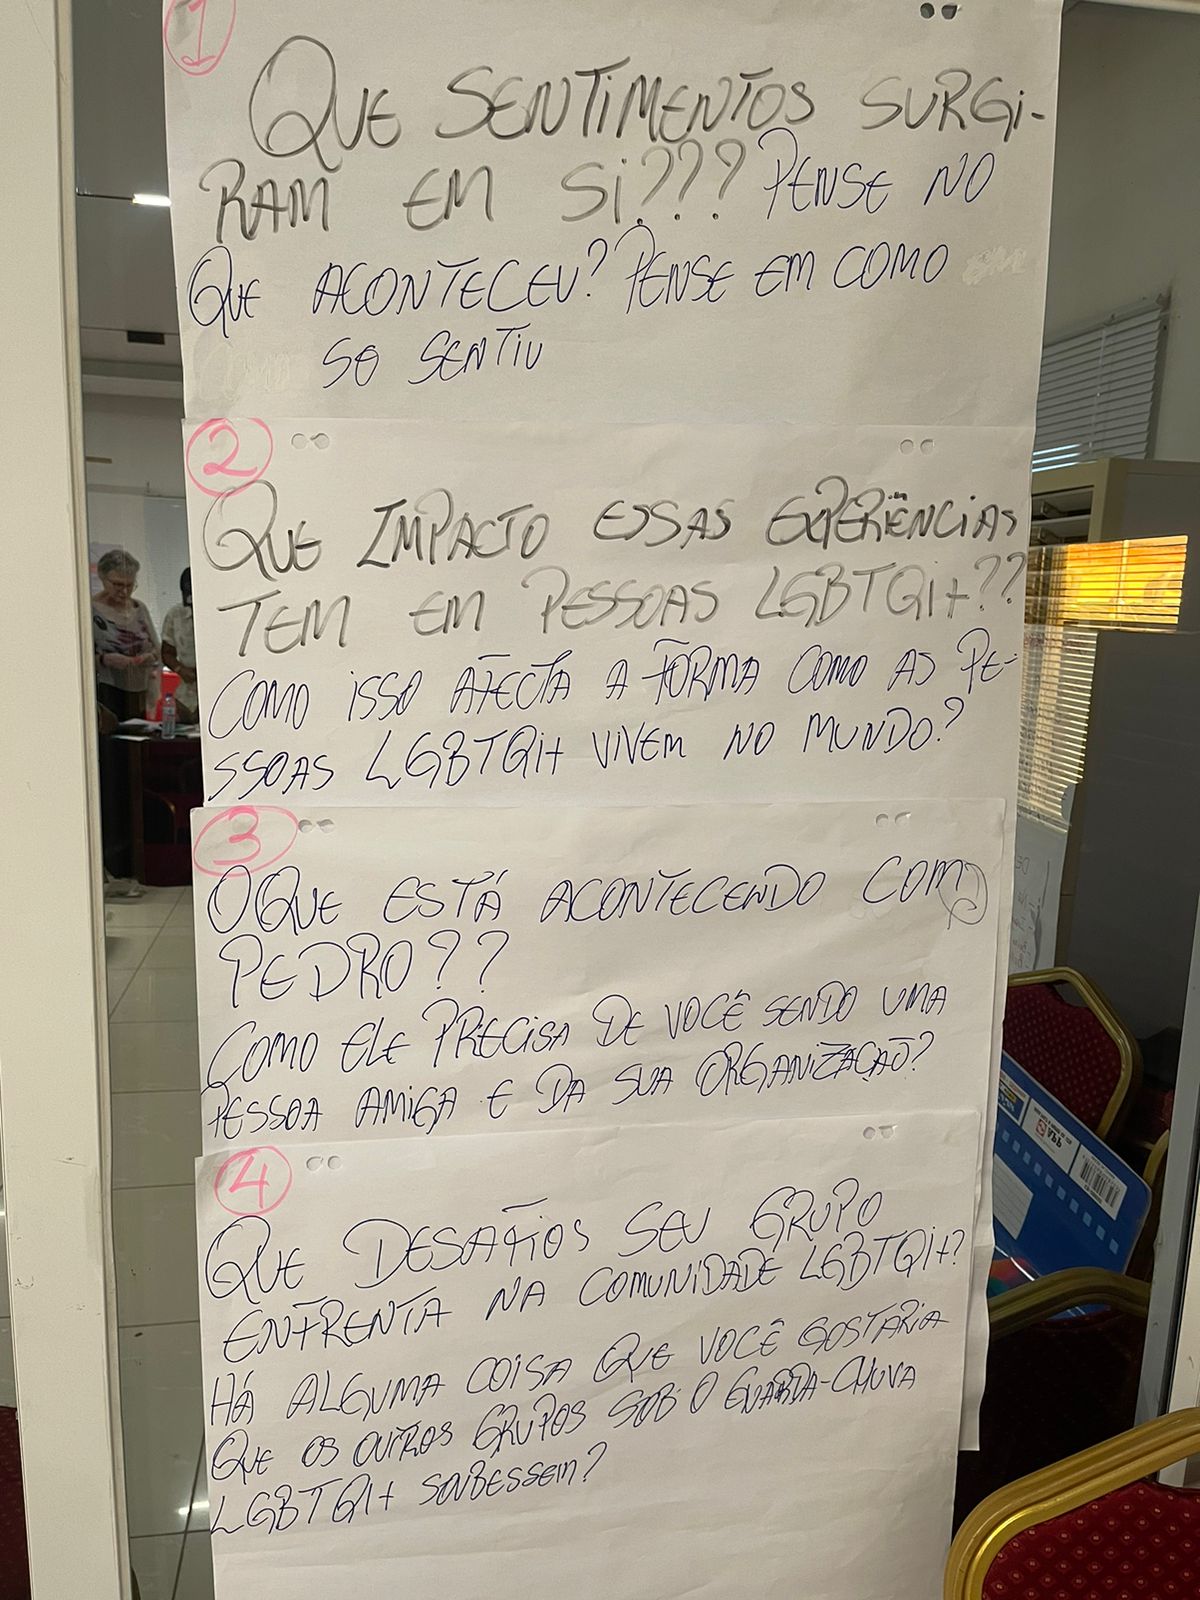 1
QUE SENTIMENTOS SURGI-
RAM EM SI??? PENSE NO
QUE ACONTECEU? PENSE EM COMO
SE SENTIU
2
QUE IMPACTO ESSAS EXPERIÊNCIAS
TEM EM PESSOAS LGBTQI+??
COMO ISSO AFECTA A FORMA COMO AS PE-
SSOAS LGBTQI+ VIVEM NO MUNDO?
3
O QUE ESTÁ ACONTECENDO COM
PEDRO??
COMO ELE PRECISA DE VOCÊ SENDO UMA
PESSOA AMIGA E DA SUA ORGANIZAÇÃO?
4
QUE DESAFIOS SEU GRUPO
ENFRENTA NA COMUNIDADE LGBTQI+?
HÁ ALGUMA COISA QUE VOCÊ GOSTARIA
QUE OS OUTROS GRUPOS SOB O GUARDA-CHUVA
LGBTQI+ SOUBESSEM?